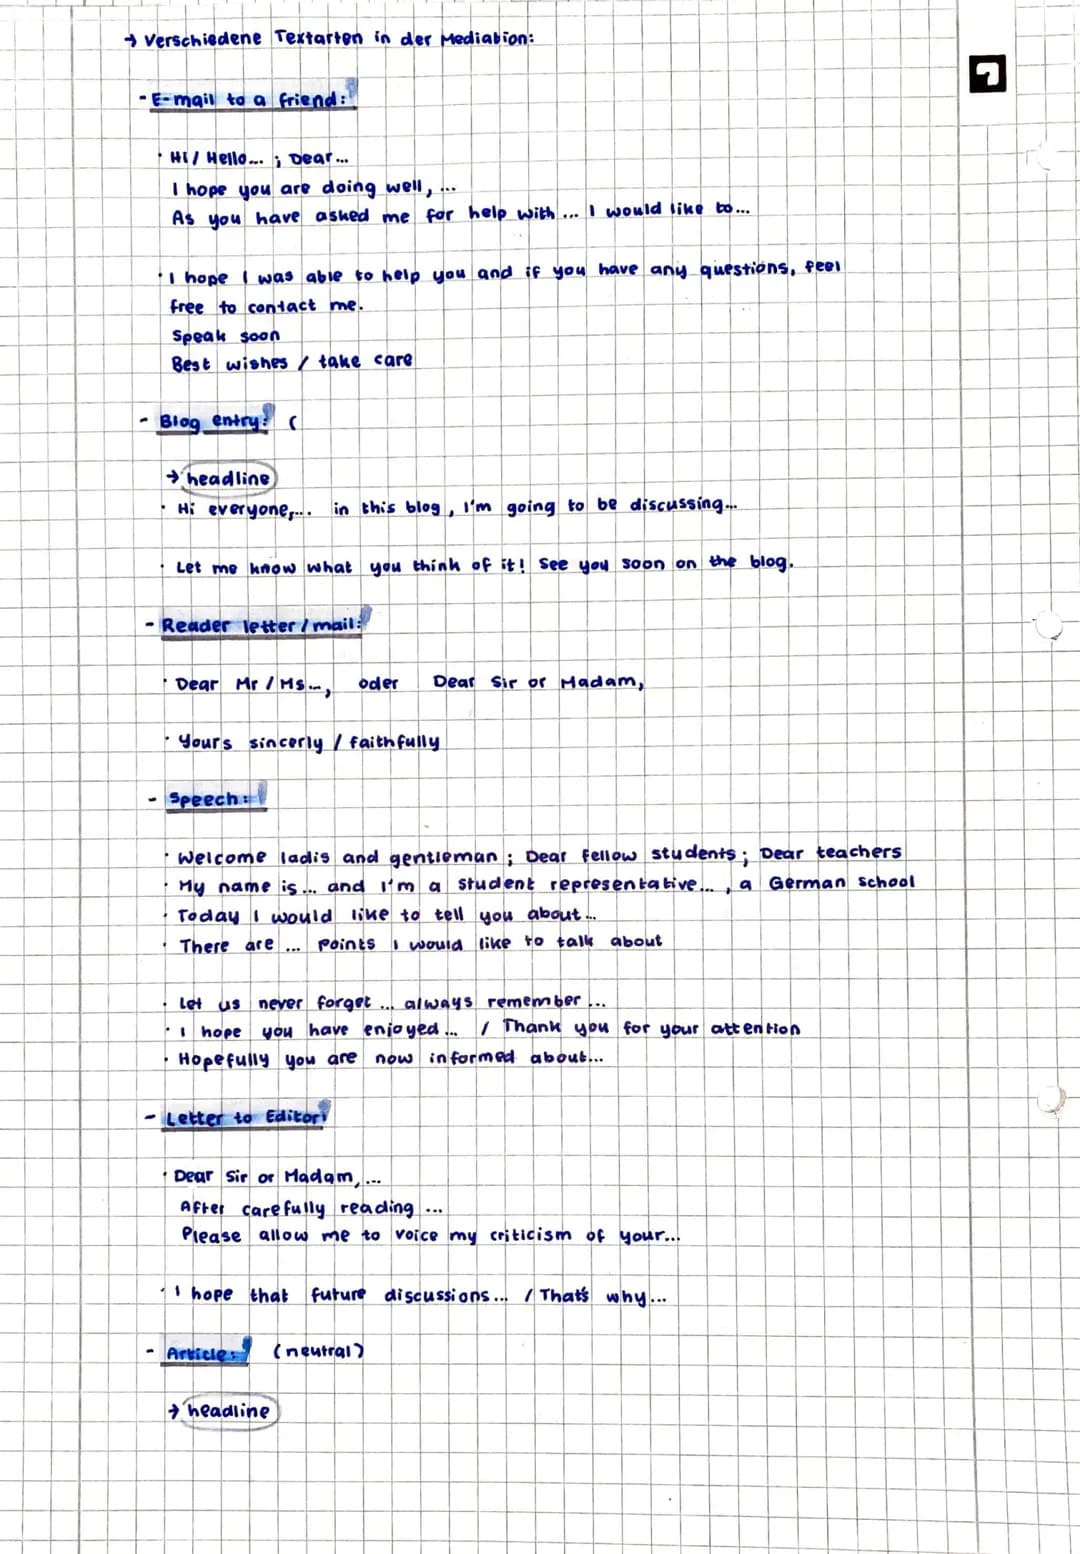 → Verschiedene Textarten in der Mediation:
- E-mail to a friend:
· Hi / Hello... ; Dear...
I hope you are doing well, ...
As you have asked me for help with ... I would like to...
· I hope I was able to help you and if you have any questions, feel
free to contact me.
Speak soon
Best wishes / take care
- Blog entry: (
→ headline
· Hi everyone,... in this blog, I'm going to be discussing...
· Let me know what you think of it! See you soon on the blog.
- Reader letter / mail:
· Dear Mr / Ms..., oder Dear Sir or Madam,
· Yours sincerly / faithfully
- Speech:
· Welcome ladis and gentleman ; Dear fellow students ; Dear teachers
· My name is ... and I'm a student representative... , a German school
· Today I would like to tell you about...
· There are ... points I would like to talk about
· Let us never forget ... always remember ...
· I hope you have enjoyed... / Thank you for your attention
· Hopefully you are now informed about...
- Letter to Editor:
· Dear Sir or Madam, ...
After carefully reading ...
Please allow me to voice my criticism of your...
· I hope that future discussions... / That's why...
- Article: (neutral)
→ headline